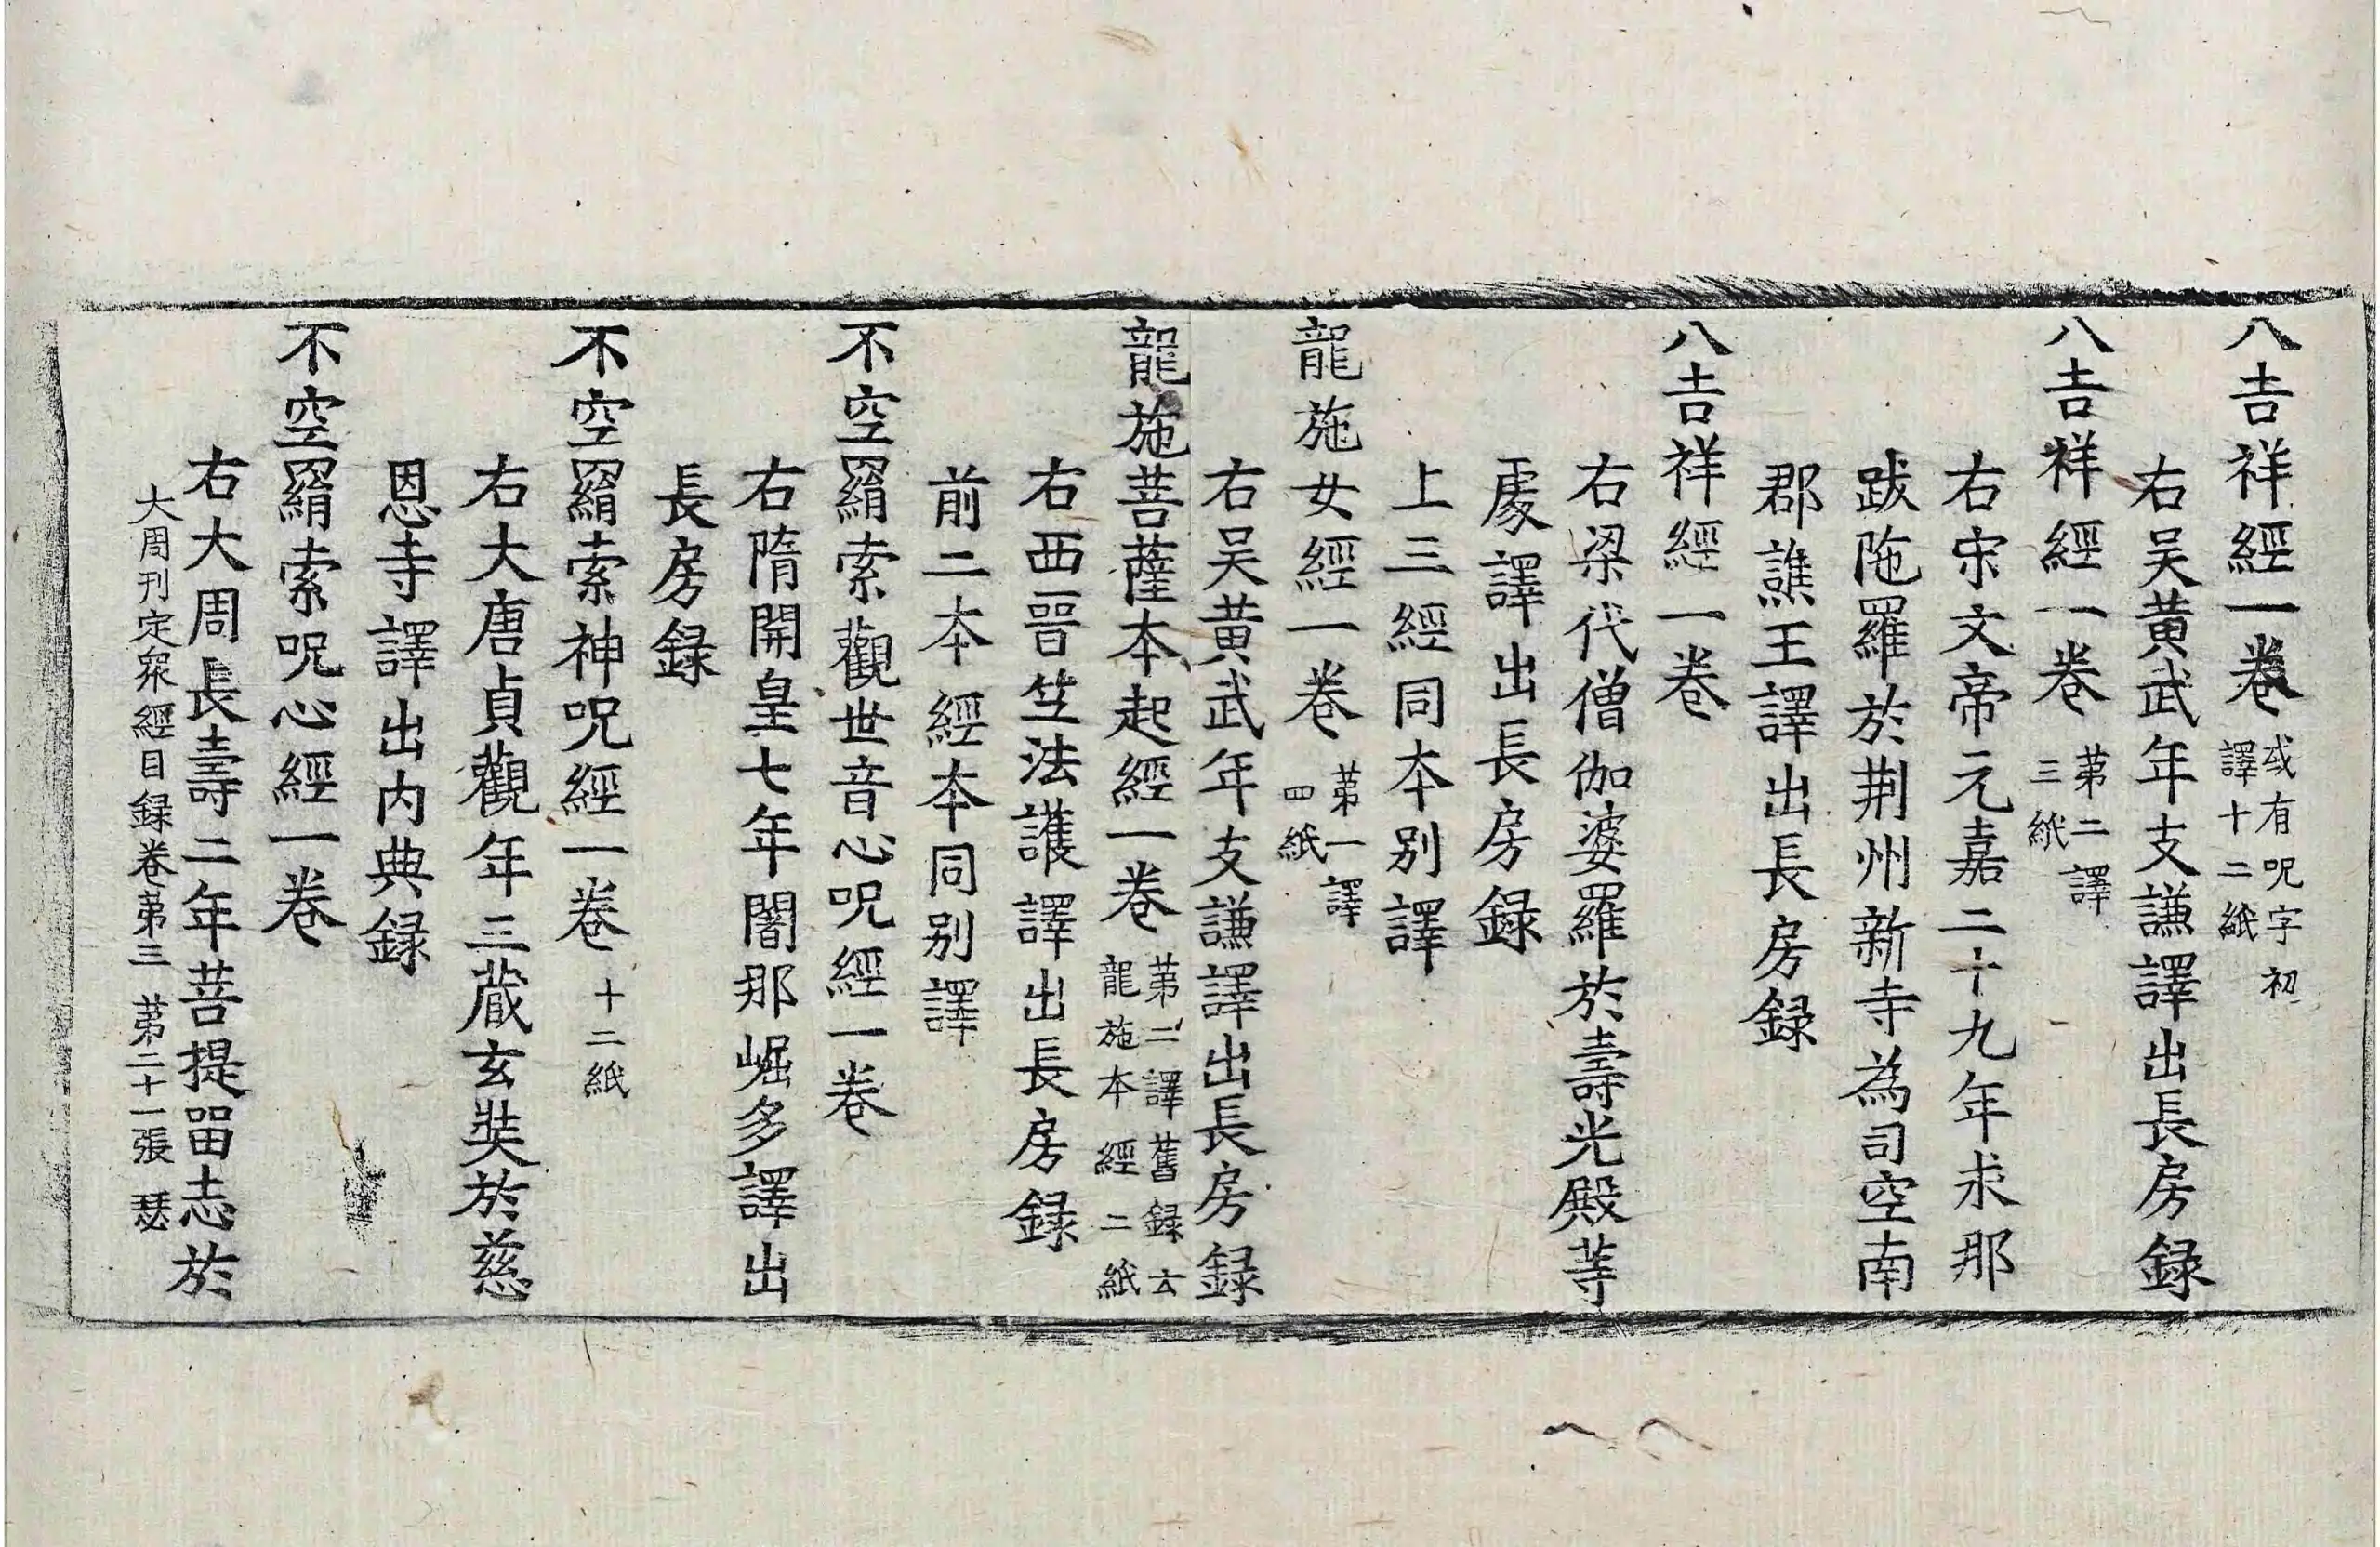 八吉祥經一卷 或有呪字初譯十二紙
右吴黄武年支謙譯出長房録
八吉祥經一卷 苐二譯三紙
右宋文帝元嘉二十九年求那
跋陁羅於荆州新寺為司空南
郡譙王譯出長房録
八吉祥經一卷
右梁代僧伽婆羅於壽光殿䓁
處譯出長房録
上三經同本别譯
龍施女經一卷 苐一譯四紙
右吴黄武年支謙譯出長房録
龍施菩薩本起經一卷 苐二譯舊録云龍施本經二紙
右西晉竺法護譯出長房録
前二本經本同别譯
不空羂索觀世音心呪經一卷
右隋開皇七年闍那崛多譯出
長房録
不空羂索神呪經一卷 十二紙
右大唐貞觀年三藏玄奘於慈
恩寺譯出内典録
不空羂索呪心經一卷
右大周長壽二年菩提留志於
大周刊定衆經目録卷苐三 苐二十一張 瑟